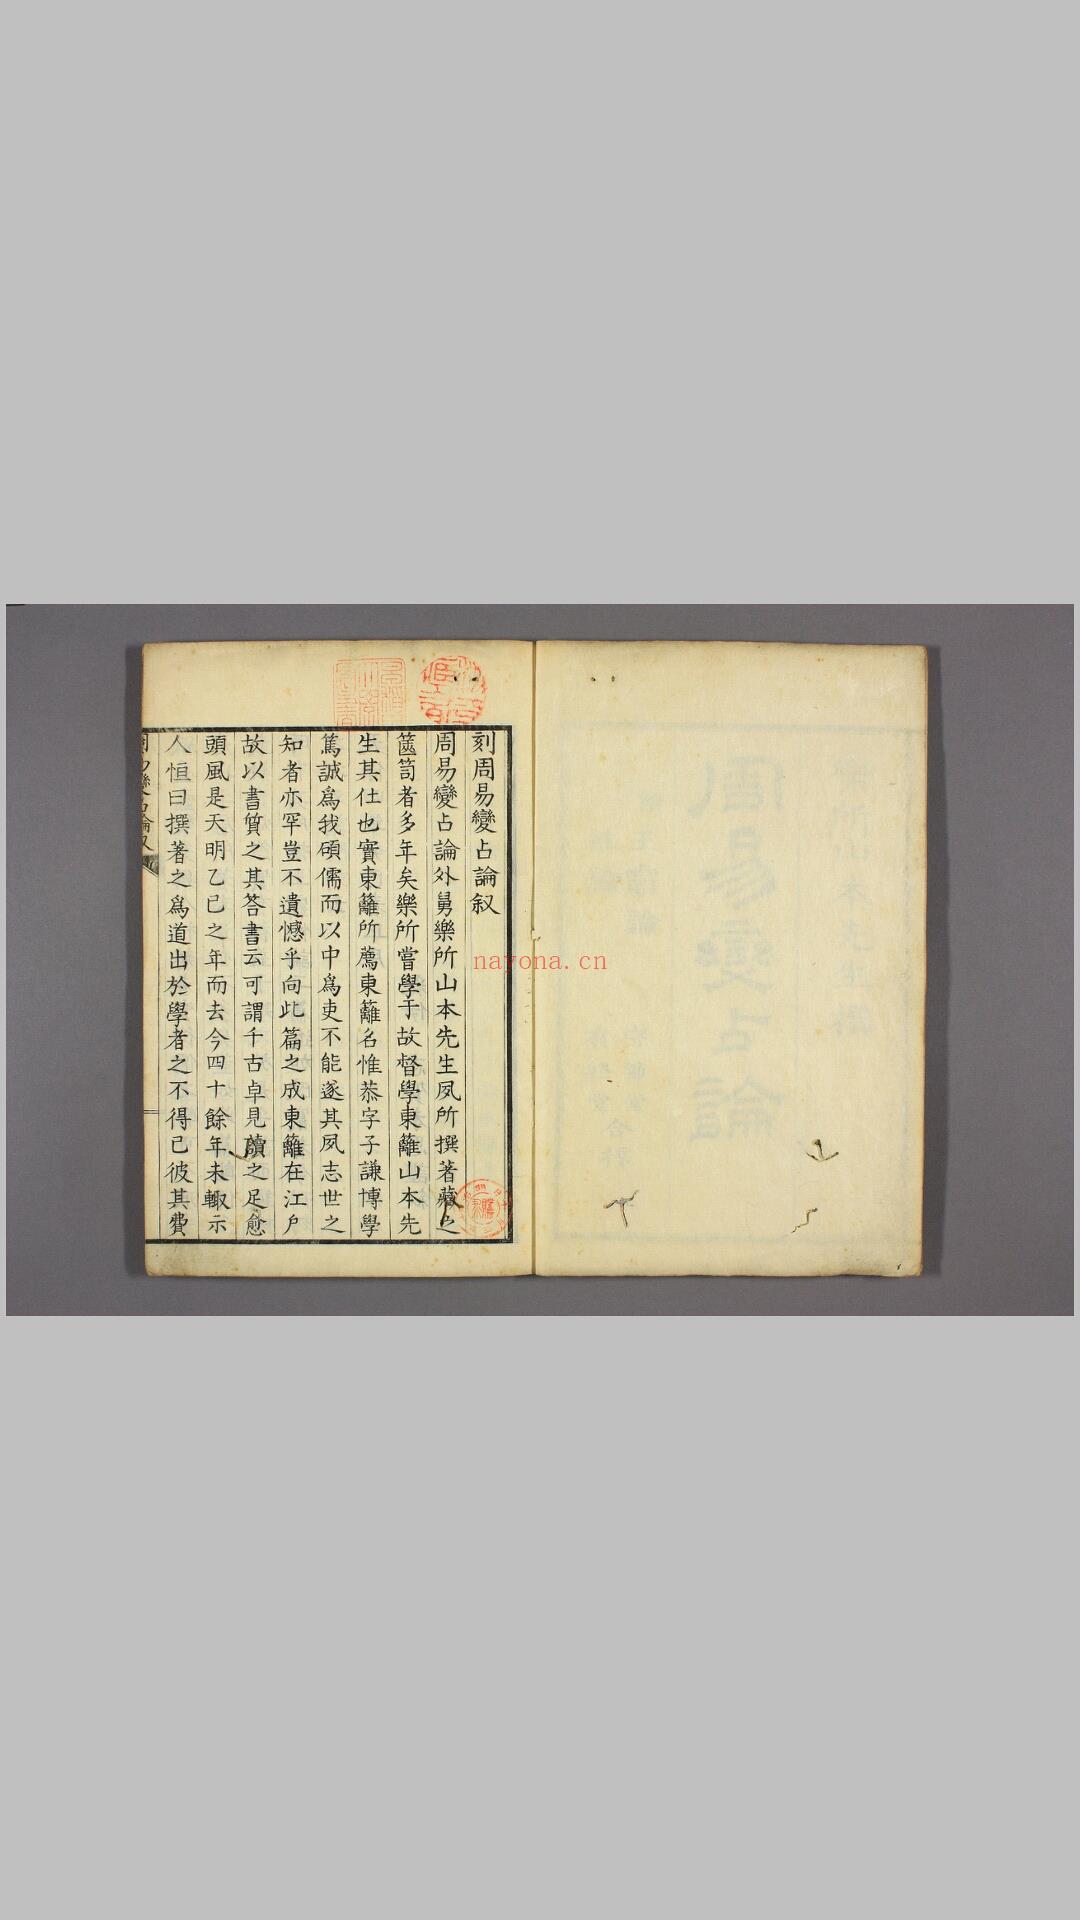 刻周易變占論叙
周易變占論外舅樂所山本先生夙所撰著藏之
篋笥者多年矣樂所嘗學于故督學東籬山本先
生其仕也實東籬所薦東籬名惟恭字子謙博學
篤誠爲我碩儒而以中爲吏不能遂其夙志世之
知者亦罕豈不遺憾乎向此篇之成東籬在江戶
故以書質之其荅書云可謂千古卓見讀之足愈
頭風是天明乙巳之年而去今四十餘年未輙示
人恒曰撰著之爲道出於學者之不得已彼其費
nayona.cn